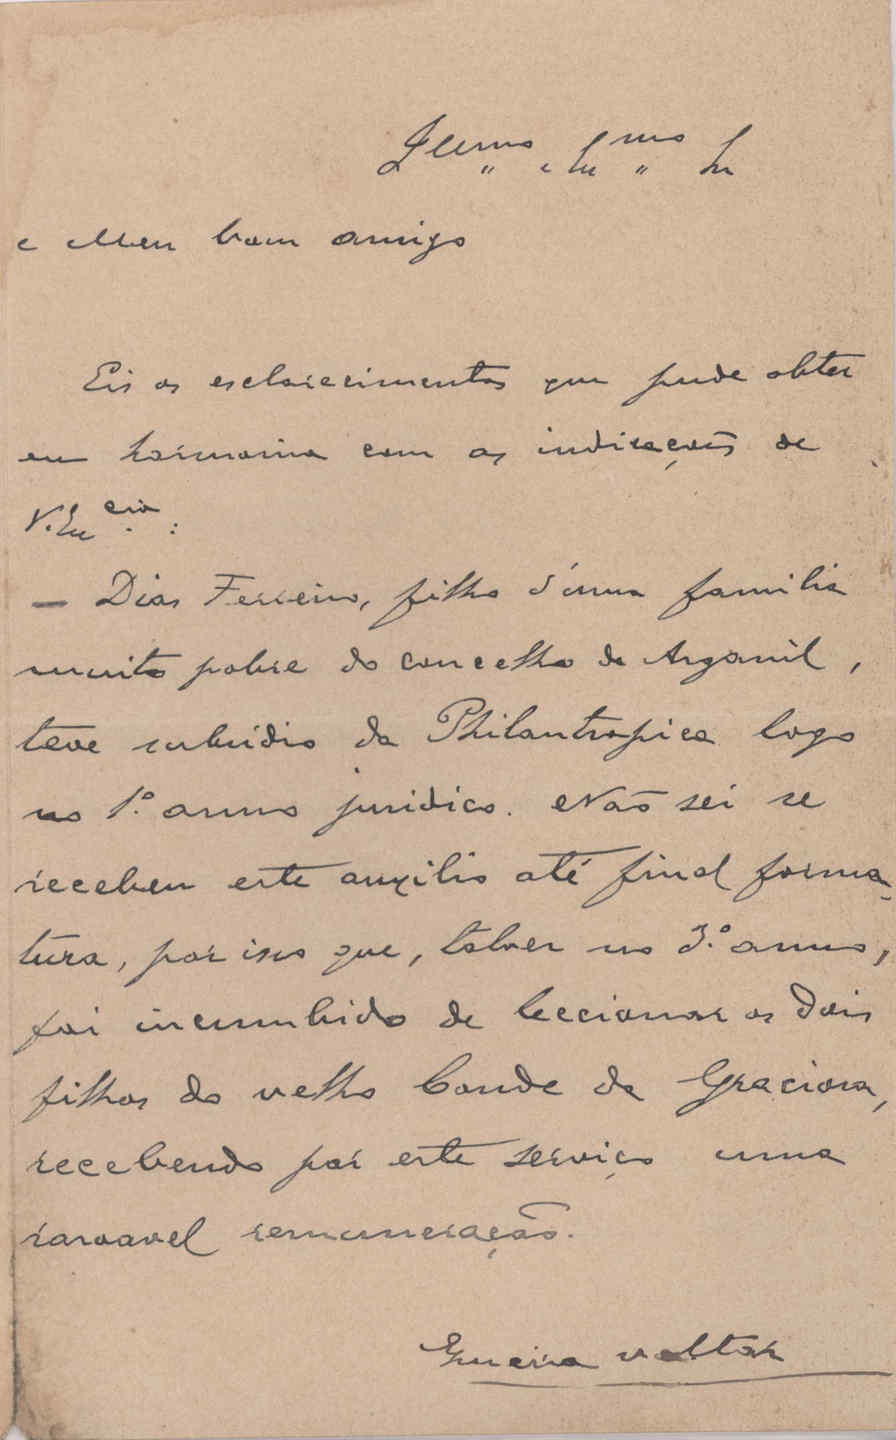 Illmo e Exmo Sr
e Meu bom amigo
Eis os esclarecimentos que pude obter
em harmonia com as indicações de
V. Excia:
— Dias Ferreira, filho d'uma familia
muito pobre do concelho de Arganil,
teve subsidio da Philantropica logo
no 1.º anno juridico. Não sei se
recebeu este auxilio até final forma-
tura, por isso que, talvez no 3.º anno,
foi incumbido de leccionar os dois
filhos do velho Conde da Graciosa,
recebendo por este serviço uma
razoavel remuneração.
Queira voltar